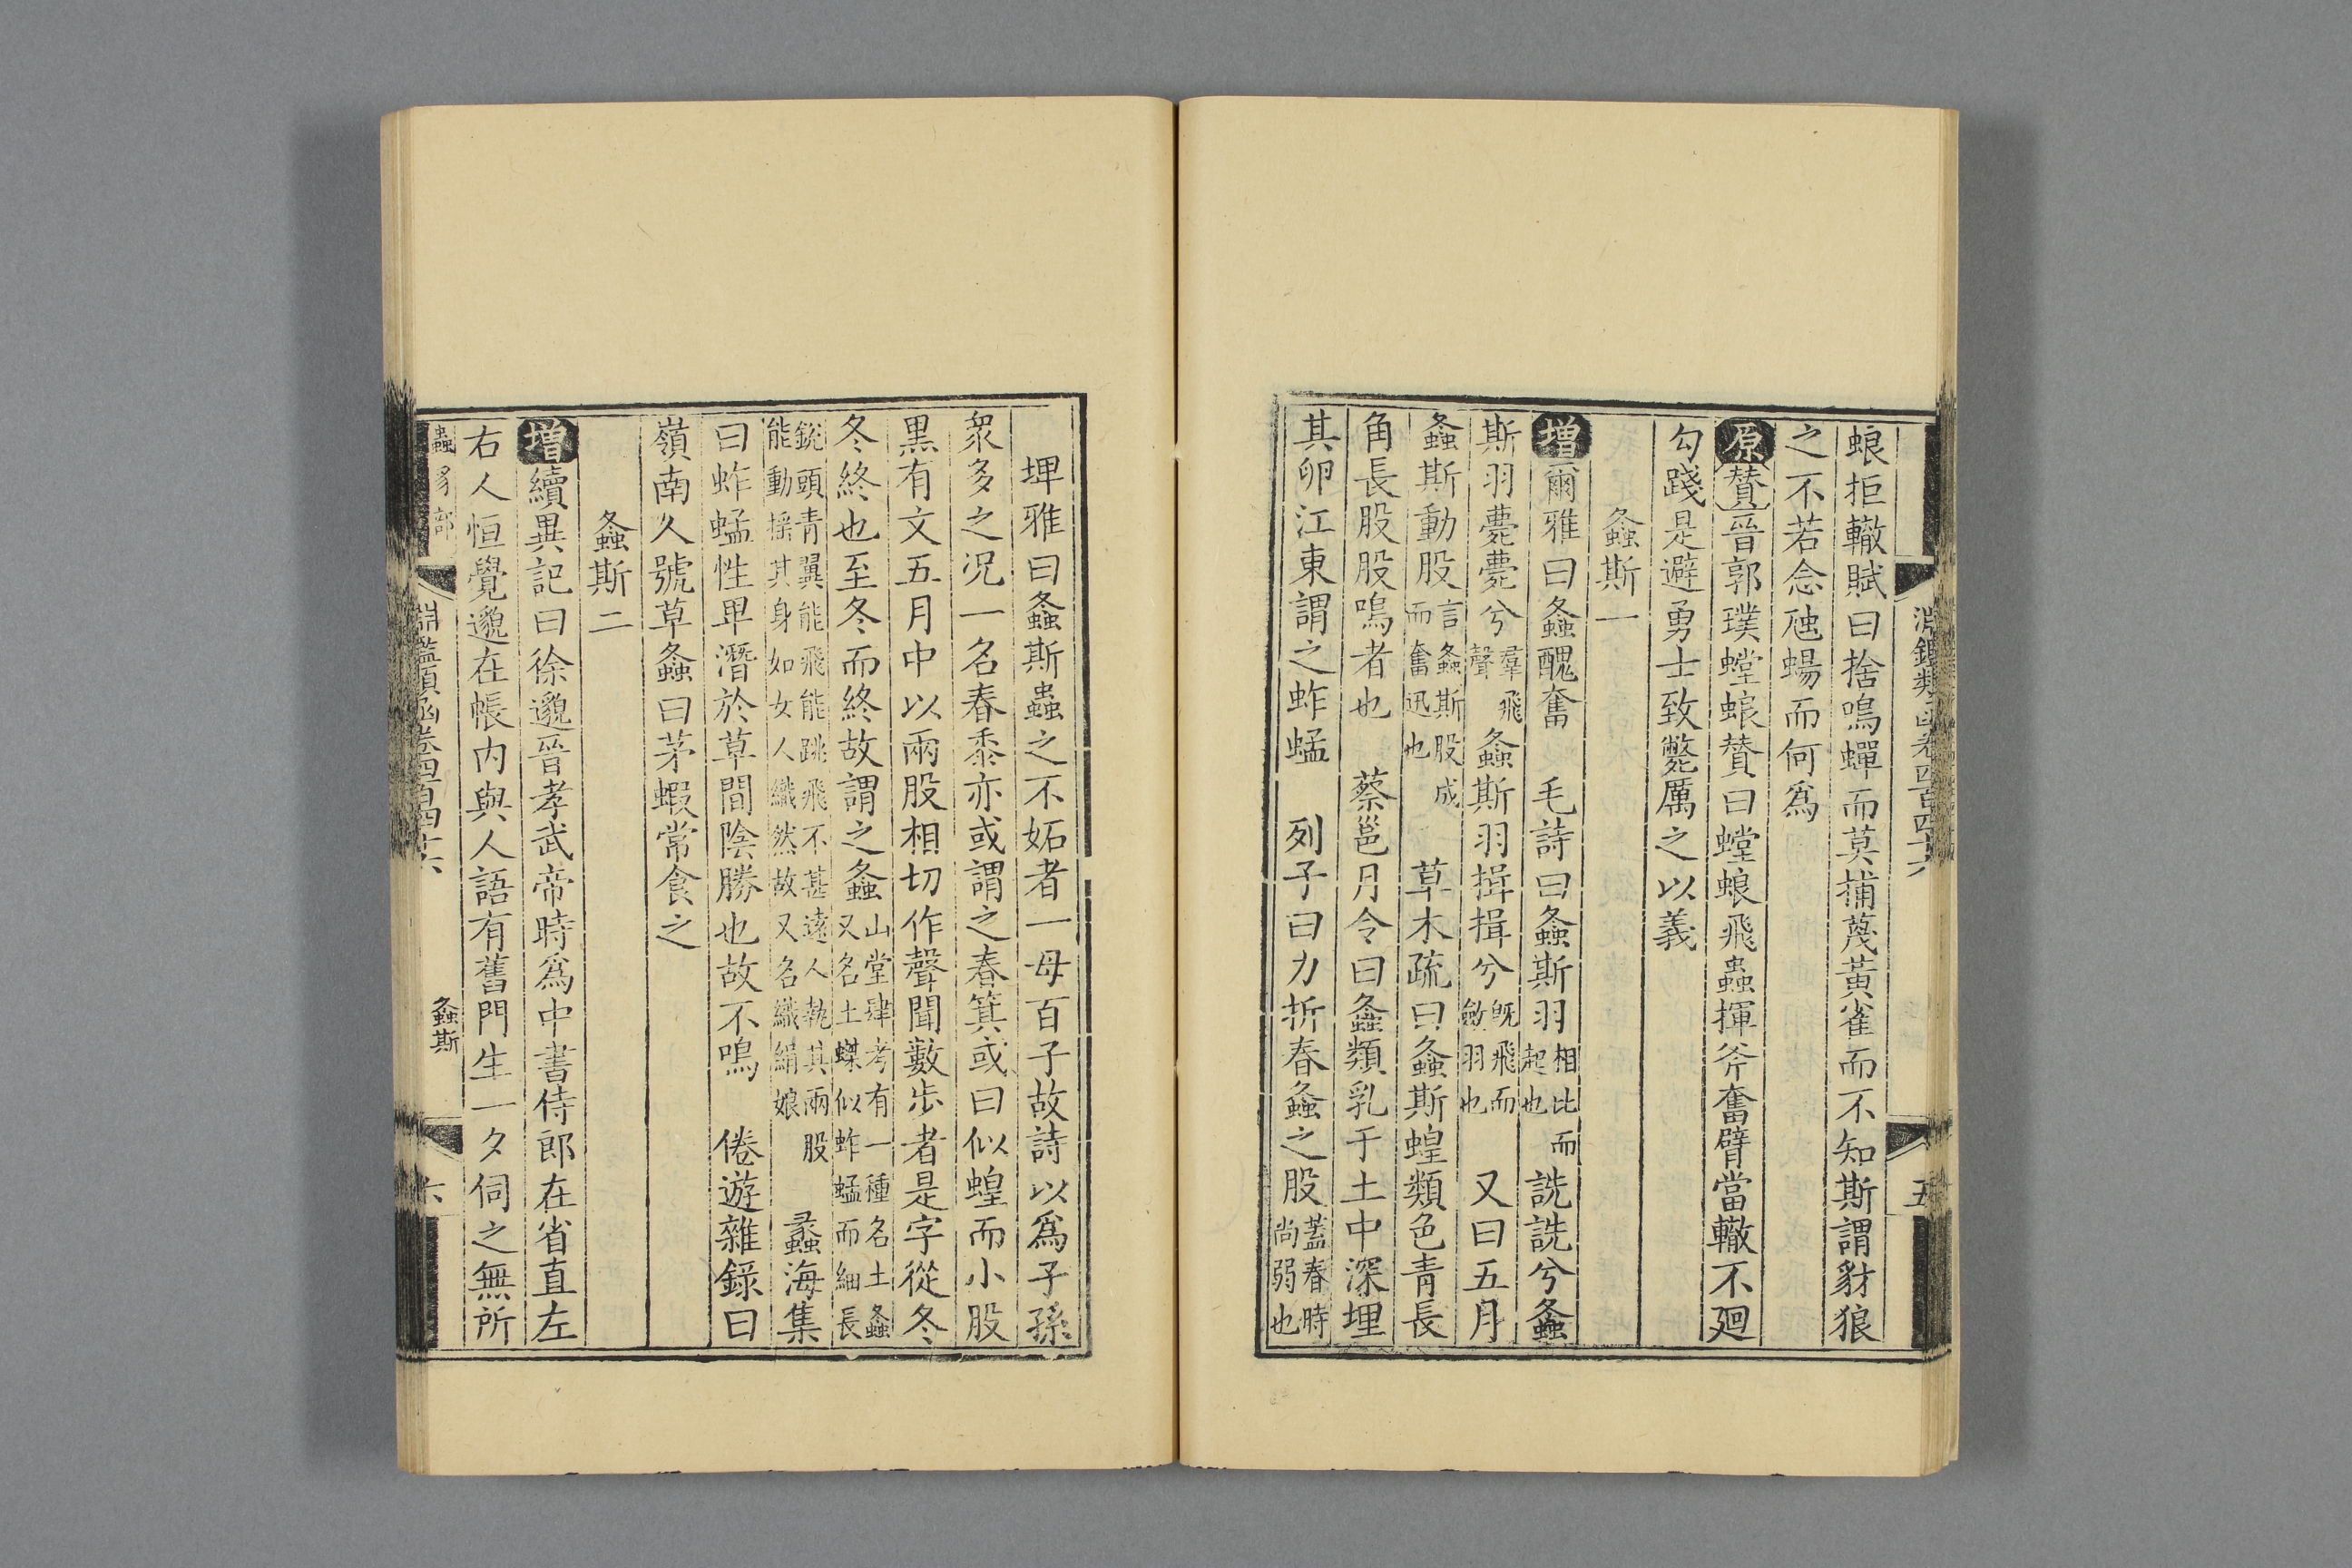 淵鑑類函卷四百四十六
五
蜋拒轍賦曰捨鳴蟬而莫捕蔑黃雀而不知斯謂豺狼
之不若念虺蜴而何爲
原贊晉郭璞螳蜋贊曰螳蜋飛蟲揮斧奮臂當轍不廻
勾踐是避勇士致斃厲之以義
螽斯一
增爾雅曰螽醜奮　毛詩曰螽斯羽相比而起也詵詵兮螽
斯羽薨薨兮羣飛聲螽斯羽揖揖兮旣飛而斂羽也　又曰五月
螽斯動股言螽斯股成而奮迅也　草木疏曰螽斯蝗類色青長
角長股股鳴者也　蔡邕月令曰螽類乳于土中深埋
其卵江東謂之蚱蜢　列子曰力折春螽之股蓋春時尚弱也
埤雅曰螽斯蟲之不妬者一母百子故詩以爲子孫
衆多之況一名春黍亦或謂之春箕或曰似蝗而小股
黑有文五月中以兩股相切作聲聞數步者是字從冬
冬終也至冬而終故謂之螽山堂肆考有一種名土螽又名土蟍似蚱蜢而細長
銳頭青翼能飛能跳飛不甚遠人執其兩股能動揺其身如女人織然故又名織絹娘　蠡海集
曰蚱蜢性卑潛於草間陰勝也故不鳴　倦遊雜錄曰
嶺南人號草螽曰茅蝦常食之
螽斯二
增續異記曰徐邈晉孝武帝時爲中書侍郎在省直左
右人恒覺邈在帳內與人語有舊門生一夕伺之無所
蟲豸部
淵鑑類函卷四百四十六
螽斯
六